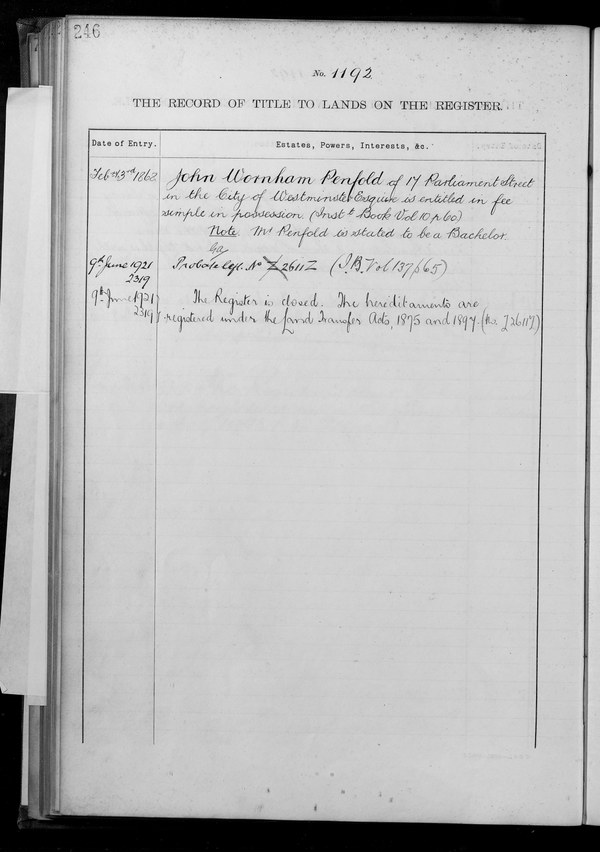 246
No. 1192
THE RECORD OF TITLE TO LANDS ON THE REGISTER.
Date of Entry.
Estates, Powers, Interests, &c.
Feb 3rd 1868
John Wornham Penfold of 17 Parliament Street
in the City of Westminster Esquire is entitled in fee
simple in possession. (Inst t Book Vol 10 p 60)
Note. Mr Penfold is stated to be a Bachelor.
9th June 1921
2319
Probate No 2611Z (I.B. Vol 137 p 65)
9th June 1921
2319
The Register is closed. The hereditaments are
registered under the Land Transfer Acts, 1875 and 1897